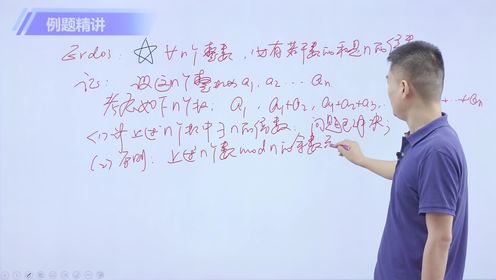 例题精讲
Erdos: ☆ ∀n个整数，必有若干数的和是n的倍
证：设这n个整数为a₁, a₂ … aₙ
考虑如下n个数：a₁, a₁+a₂, a₁+a₂+a₃, … +aₙ
(1) 若上述n个数中∃n的倍数，问题已解决；
(2) 否则：上述n个数mod n的余数